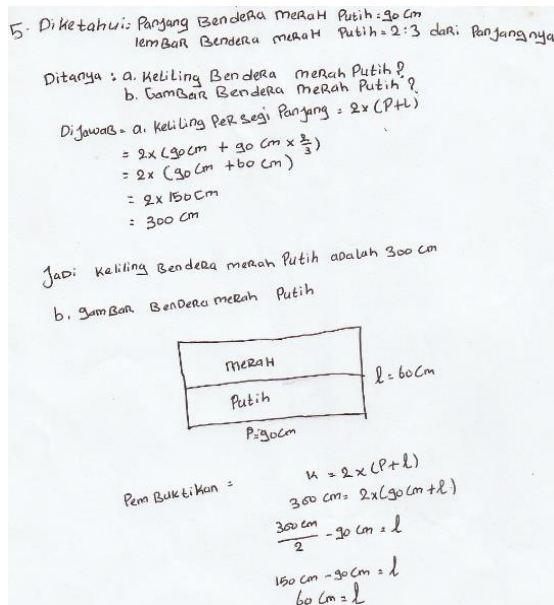 5. Diketahui: Panjang Bendera merah Putih = 90 cm
lembar Bendera merah Putih = 2:3 dari Panjangnya
Ditanya : a. Keliling Bendera merah Putih?
b. Gambar Bendera merah Putih?
Dijawab = a. Keliling Persegi Panjang = 2x (P+L)
= 2x (90 cm + 90 cm x 2/3)
= 2x (90 cm + 60 cm)
= 2x 150 cm
= 300 cm
Jadi Keliling Bendera merah Putih adalah 300 cm
b. gambar Bendera merah Putih
merah
Putih
l = 60 cm
P = 90 cm
Pembuktikan =
K = 2x (P+l)
300 cm = 2x (90 cm + l)
300 cm/2 - 90 cm = l
150 cm - 90 cm = l
60 cm = l